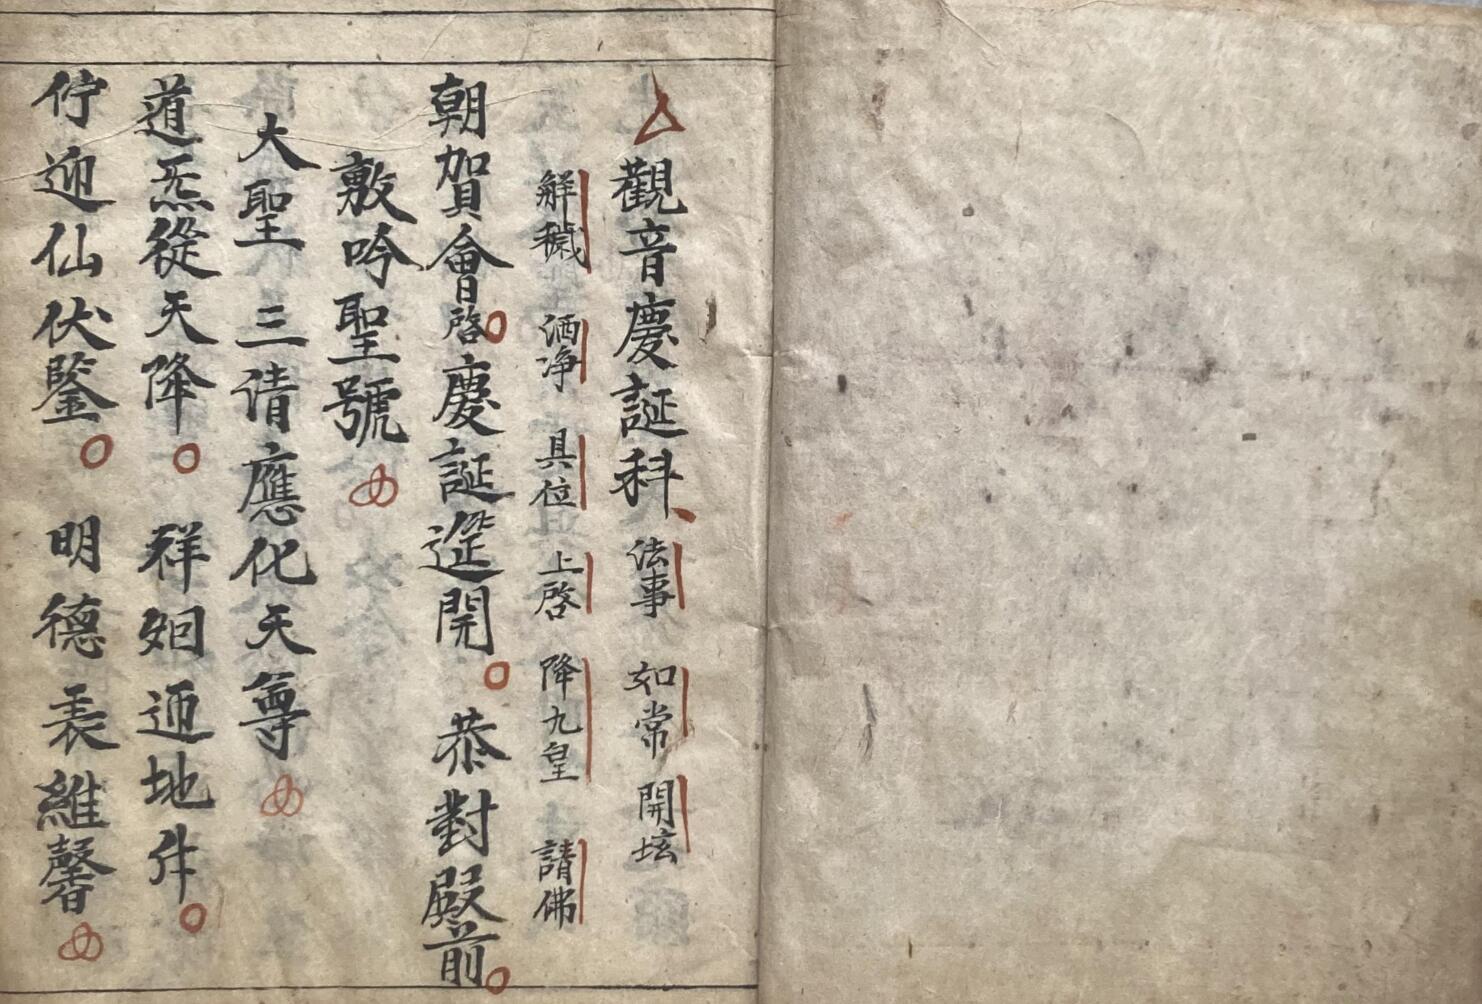 觀音慶誕科 法事 如常 開坛
解穢 洒净 具位 上啓 降九皇 請佛
朝賀會啓慶誕筵開 恭對殿前
敷吟聖號
大聖三清應化天尊
道炁從天降 祥烟通地升
佇迎仙伏鑒 明德表維馨